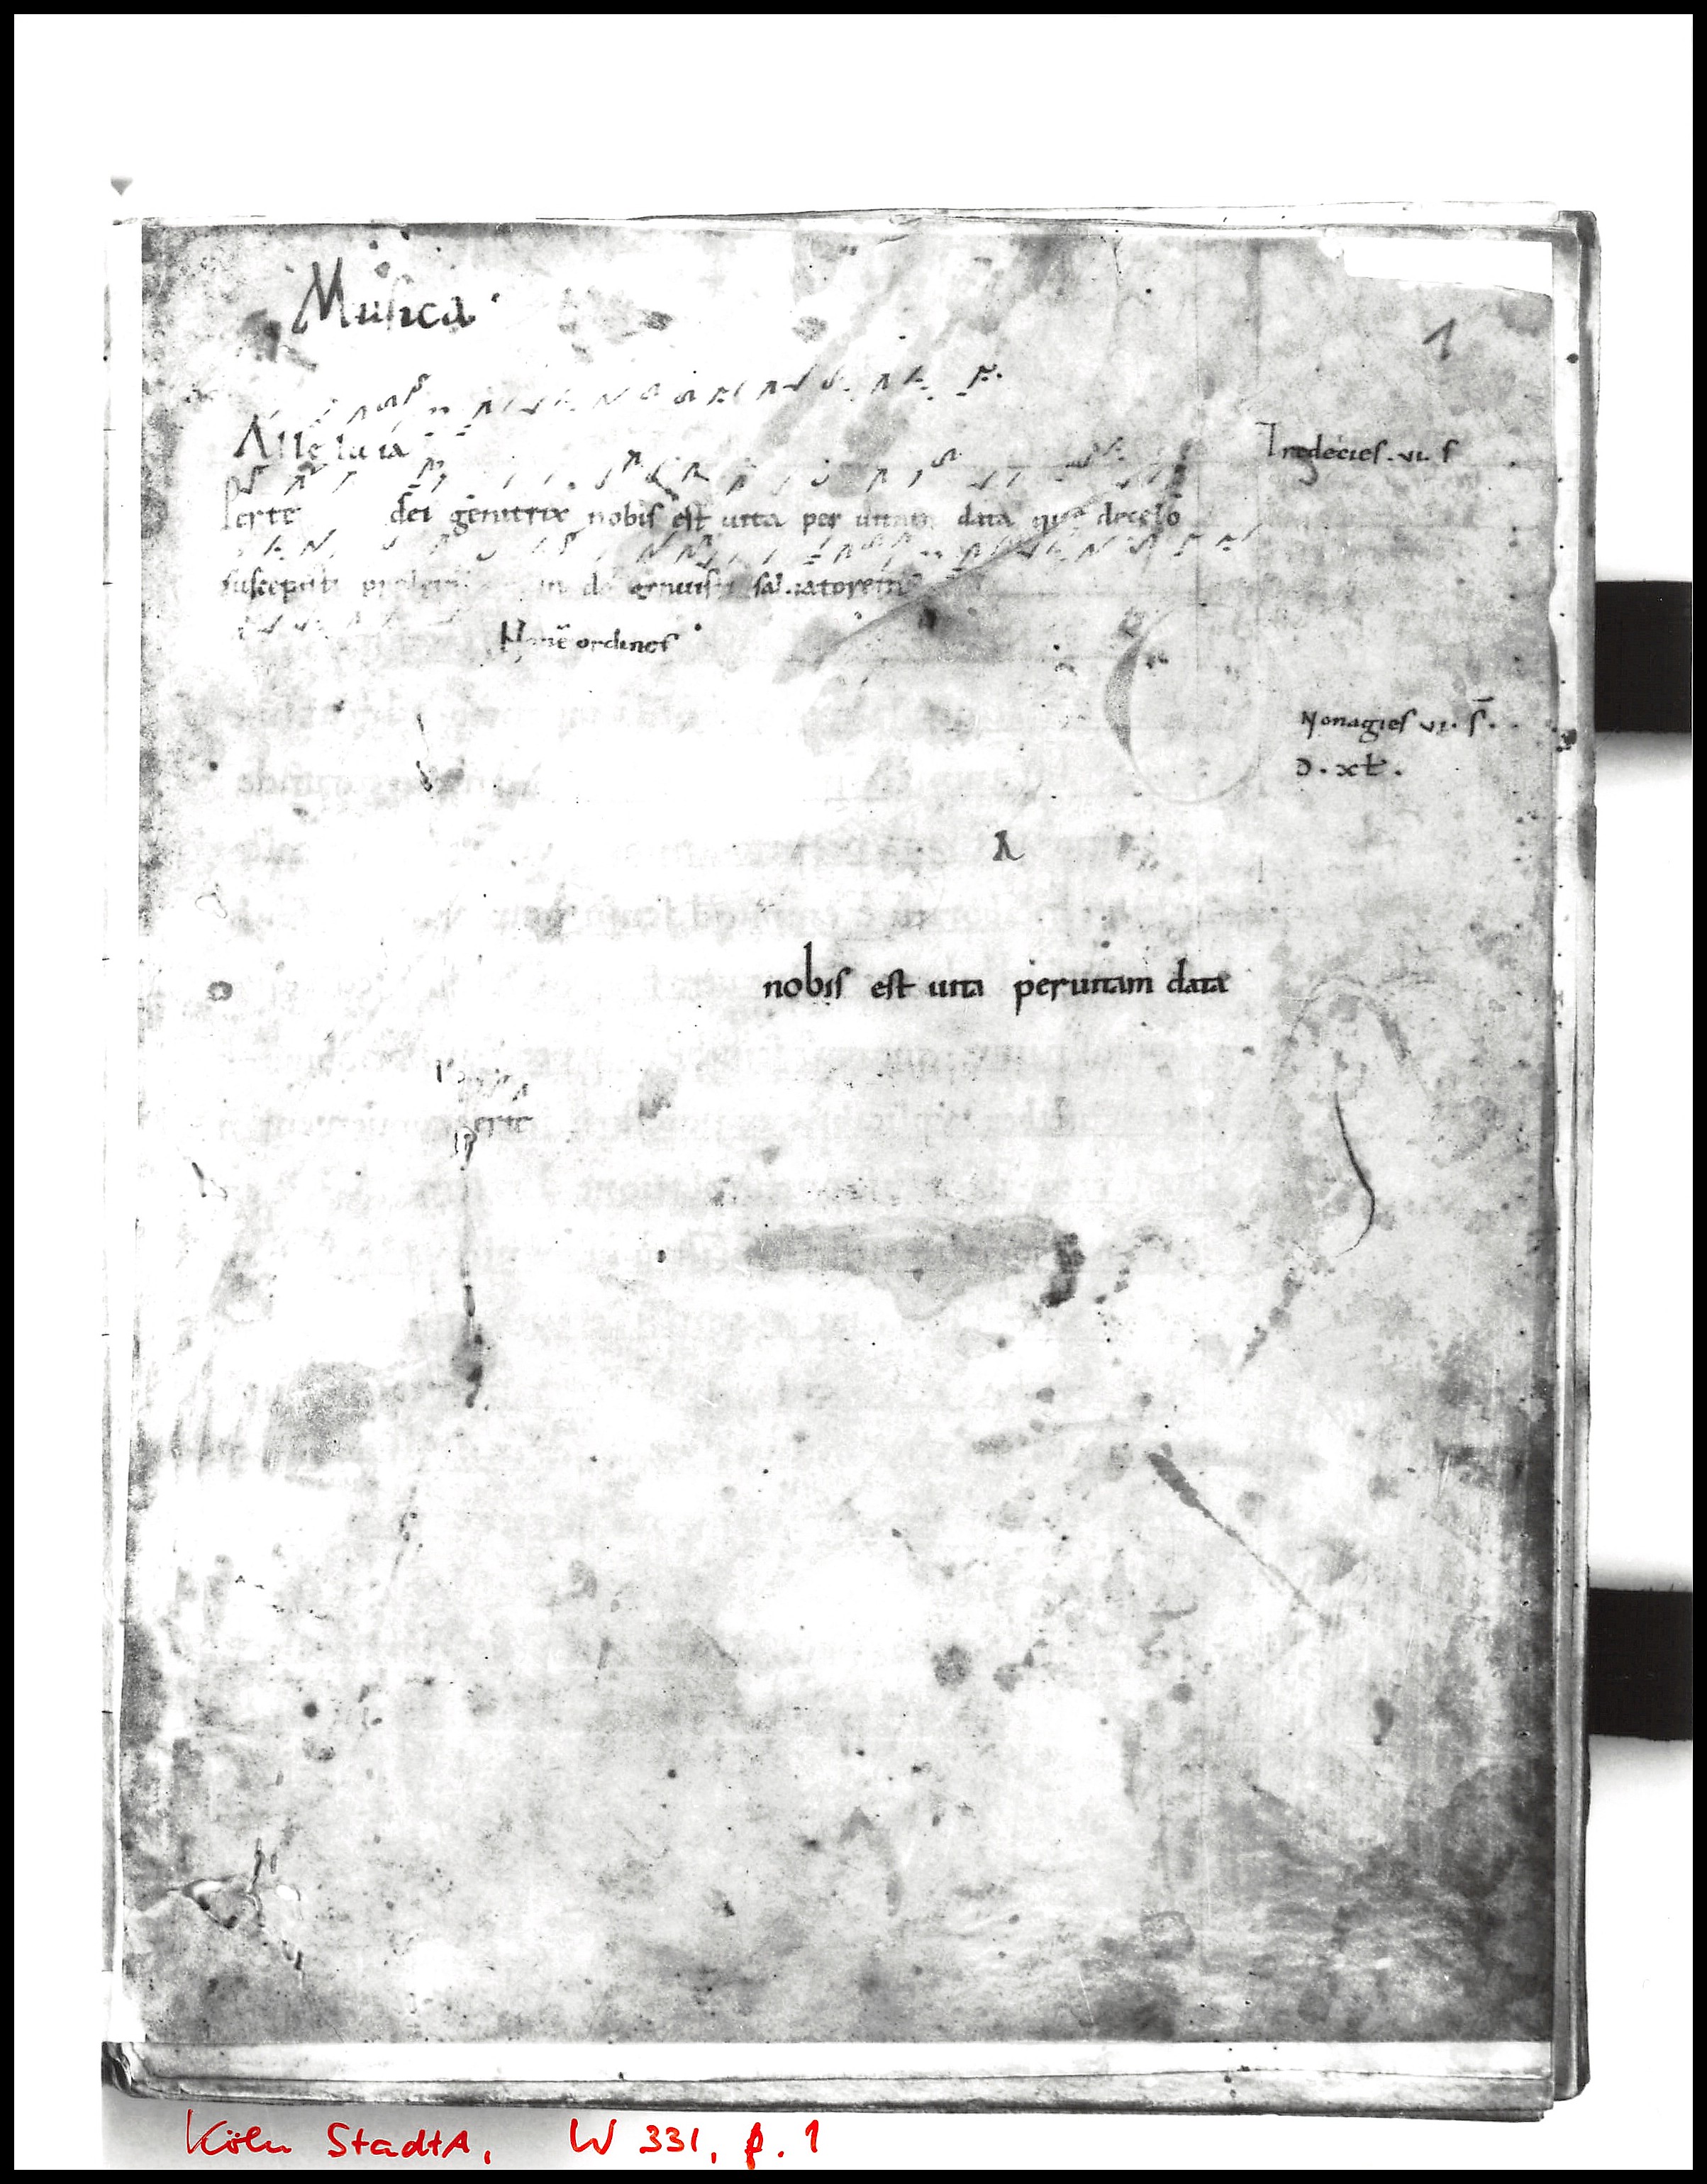 Musica
1
Alleluia
Tredecies . vi. s
perte dei genitrix nobis est uita per uitam data que decelo
suscepisti prolem genuisti saluatorem
ordines
Nonagies vi. s̄.
D . xl .
A
nobis est uita peruitam data
erte
Köln StadtA, W 331, f. 1